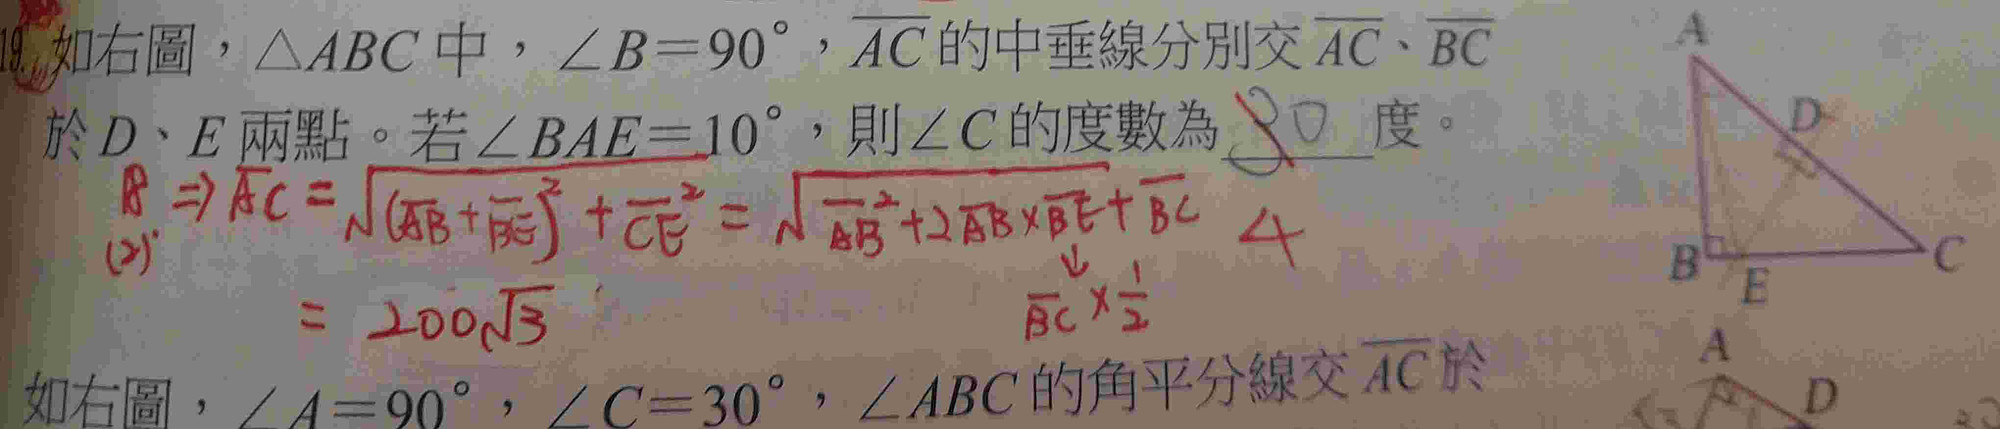 19. 如右圖，△ABC 中，∠B＝90°，AC 的中垂線分別交 AC、BC
於 D、E 兩點。若∠BAE＝10°，則∠C 的度數為 30 度。
⇒ AC = √(AB+BE)² + CE² = √AB² + 2AB × BE + BC 4
(2)
↓
BC × 1/2
= 200√3
A
D
B
E
C
如右圖，∠A＝90°，∠C＝30°，∠ABC 的角平分線交 AC 於
A
D